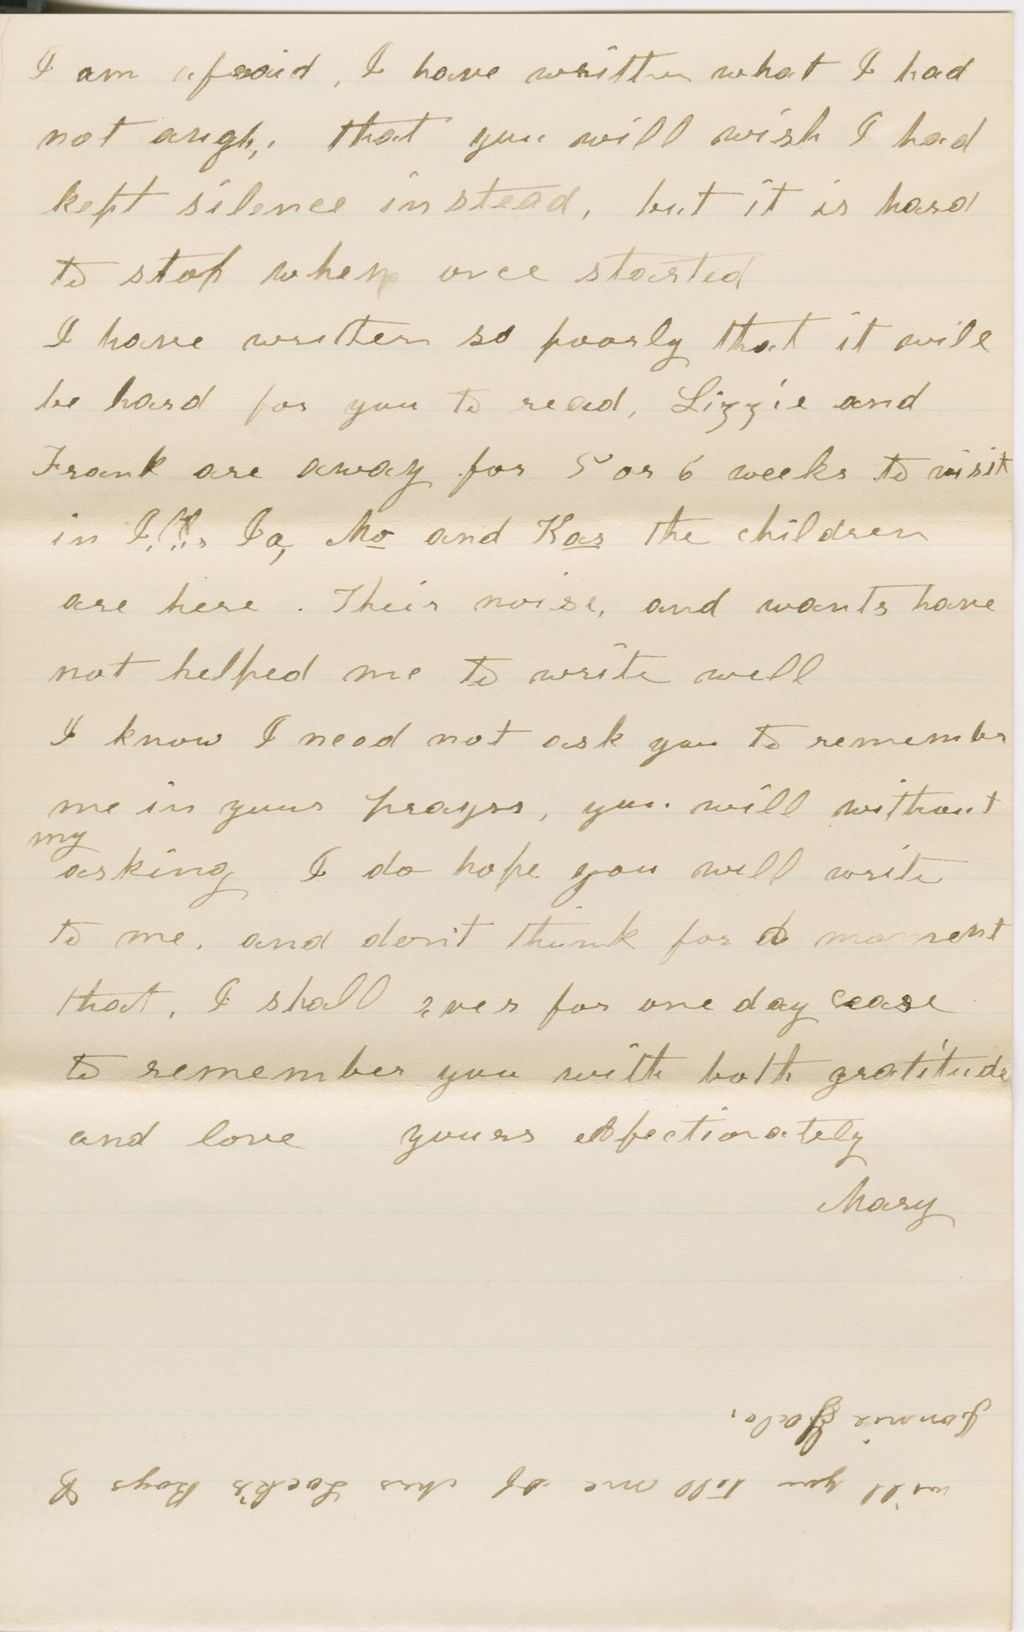 I am afraid, I have written what I had
not augh,. that you will wish I had
kept silence instead, but it is hard
to stop when once started
I have written so poorly that it will
be hard for you to read, Lizzie and
Frank are away for 5 or 6 weeks to visit
in Ills, Ia, Mo and Kas the children
are here. Their noise, and wants have
not helped me to write well
I know I need not ask you to remember
me in your prayrs, you will without
my
asking I do hope you will write
to me. and don't think for a moment
that, I shall ever for one day cease
to remember you with both gratitude
and love yours affectionately
Mary
will you tell me of Mrs Boys &
Jennie Gale.